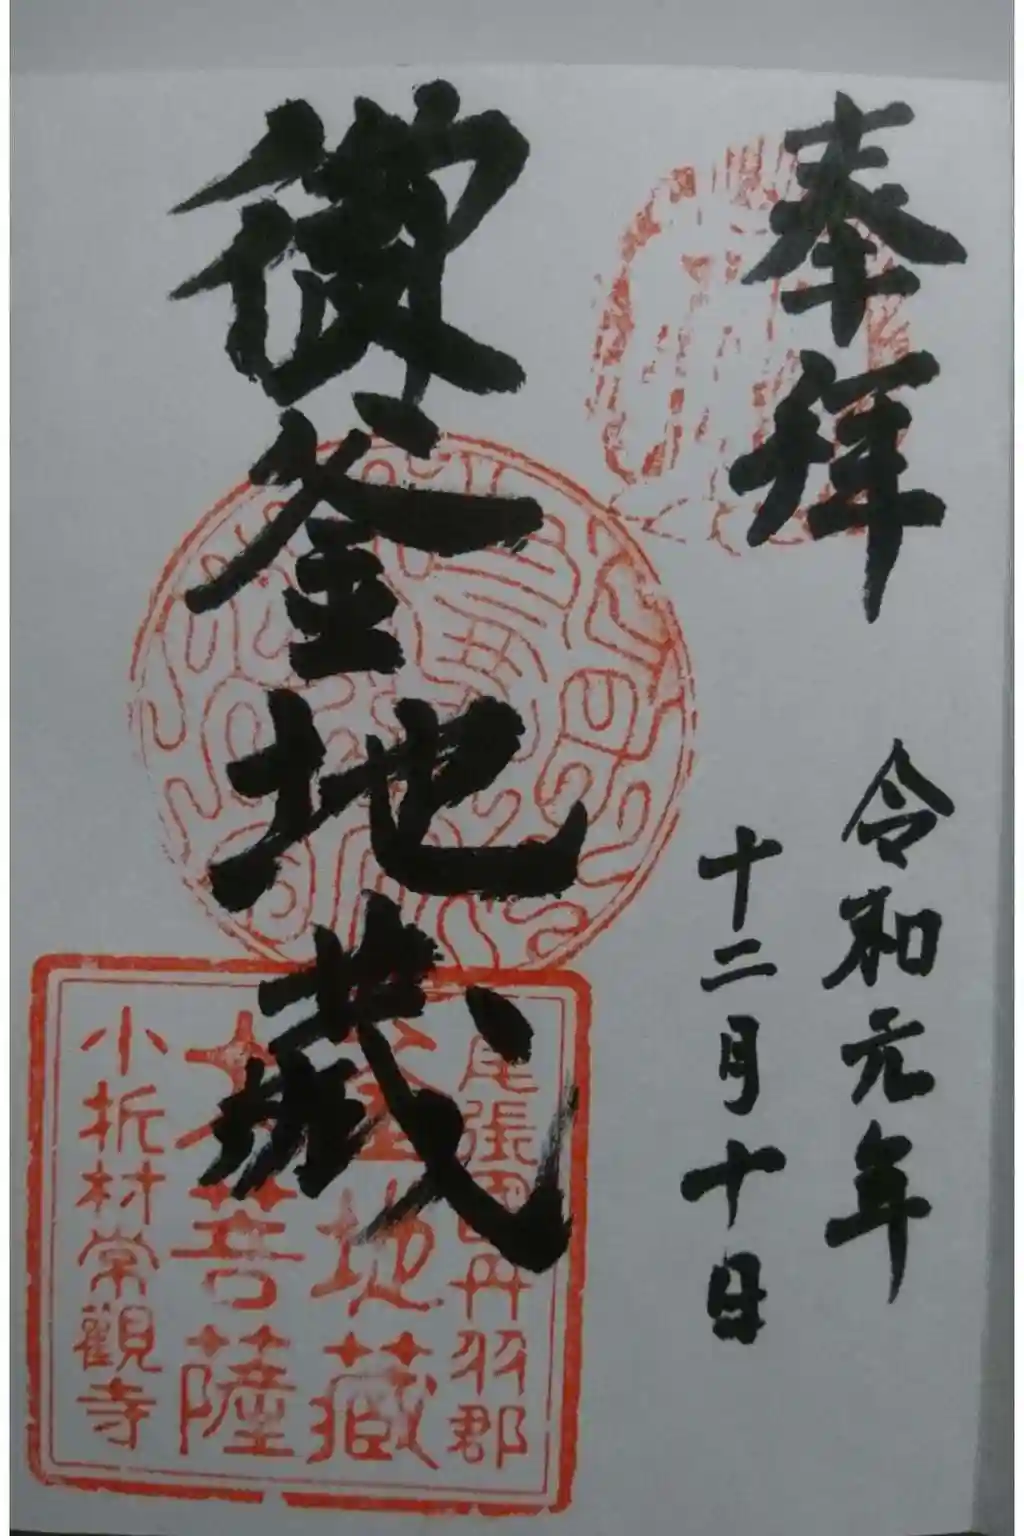 奉拝
令和元年
十二月十日
御釜地蔵
尾張國丹羽郡
釜地藏
大菩薩
小折村常觀寺